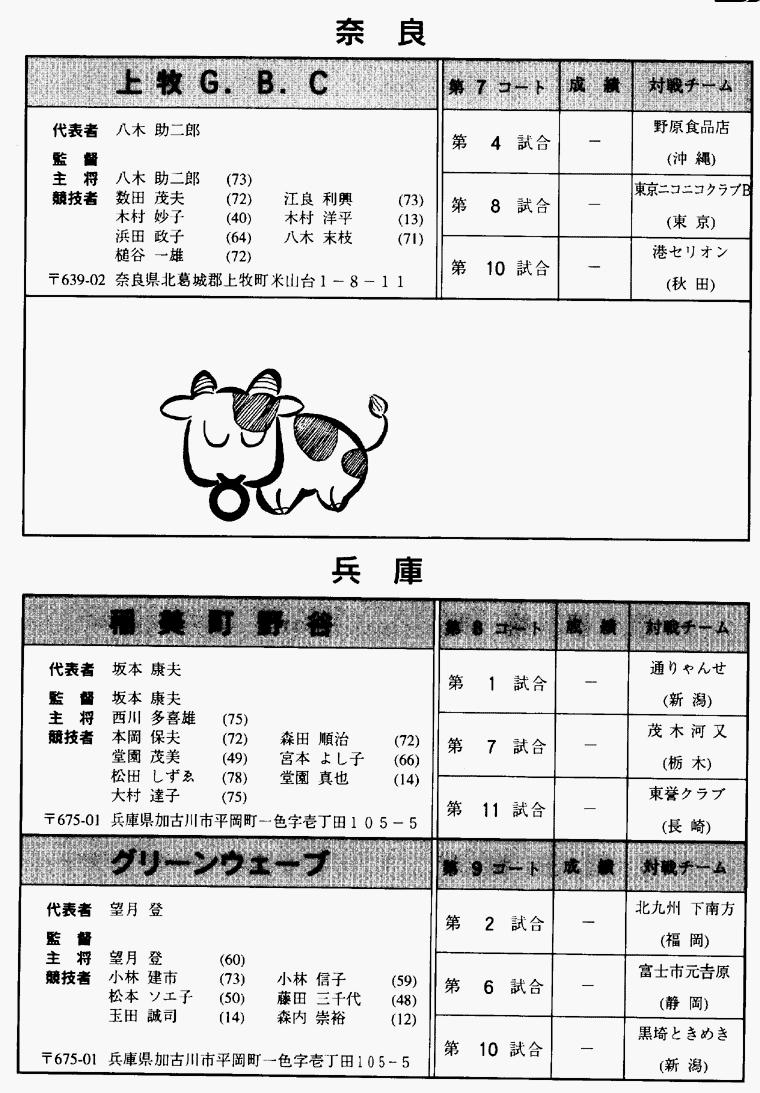 奈 良
上 牧 G. B. C
代表者 八木 助二郎
監 督
主 将 八木 助二郎 (73)
競技者 数田 茂夫 (72) 江良 利興 (73)
木村 妙子 (40) 木村 洋平 (13)
浜田 政子 (64) 八木 末枝 (71)
槌谷 一雄 (72)
〒639-02 奈良県北葛城郡上牧町米山台1－8－11
第 7 コート 成 績 対戦チーム
第 4 試合 ― 野原食品店
(沖 縄)
第 8 試合 ― 東京ニコニコクラブB
(東 京)
第 10 試合 ― 港セリオン
(秋 田)
兵 庫
稲 美 町 野 谷
代表者 坂本 康夫
監 督 坂本 康夫
主 将 西川 多喜雄 (75)
競技者 本岡 保夫 (72) 森田 順治 (72)
堂園 茂美 (49) 宮本 よし子 (66)
松田 しずゑ (78) 堂園 真也 (14)
大村 達子 (75)
〒675-01 兵庫県加古川市平岡町一色字壱丁田105－5
第 8 コート 成 績 対戦チーム
第 1 試合 ― 通りゃんせ
(新 潟)
第 7 試合 ― 茂木河又
(栃 木)
第 11 試合 ― 東誉クラブ
(長 崎)
グリーンウェーブ
代表者 望月 登
監 督
主 将 望月 登 (60)
競技者 小林 建市 (73) 小林 信子 (59)
松本 ソエ子 (50) 藤田 三千代 (48)
玉田 誠司 (14) 森内 崇裕 (12)
〒675-01 兵庫県加古川市平岡町一色字壱丁田105－5
第 9 コート 成 績 対戦チーム
第 2 試合 ― 北九州 下南方
(福 岡)
第 6 試合 ― 富士市元吉原
(静 岡)
第 10 試合 ― 黒埼ときめき
(新 潟)